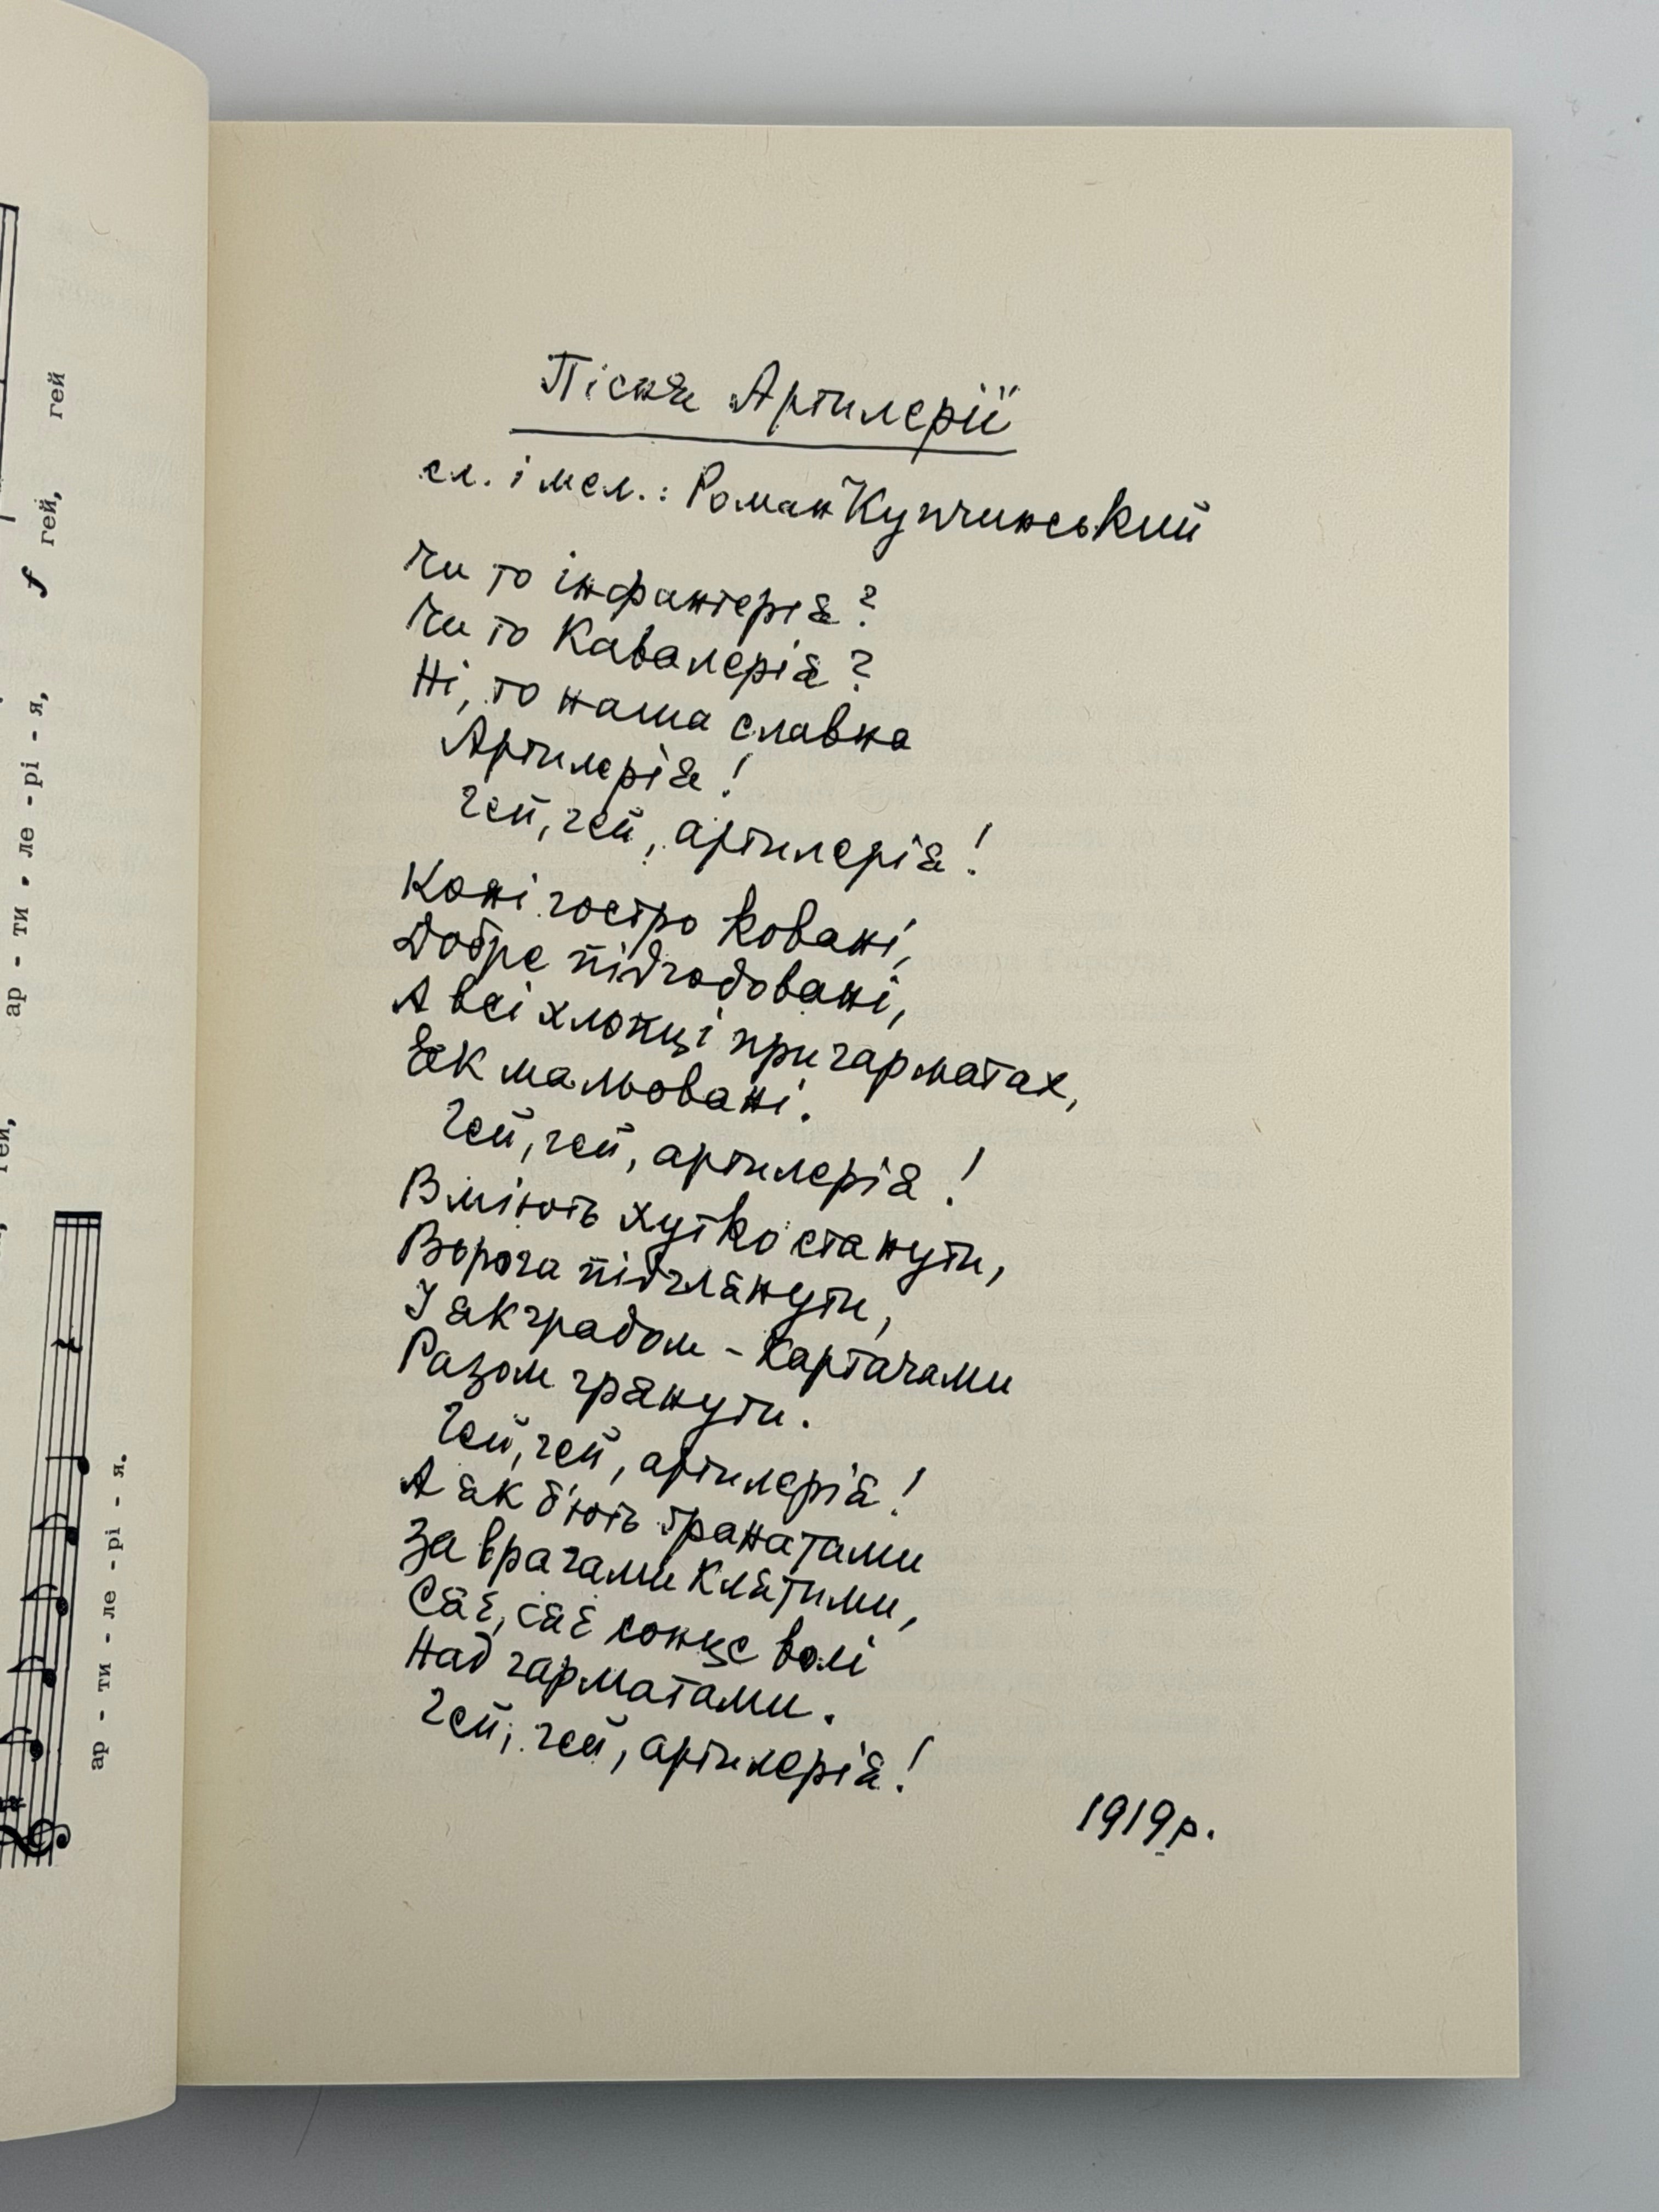 гей, гей
f
ар - ти - ле - рі - я,
гей,
ар - ти - ле - рі - я.
Пісня Артилерії
сл. і мел.: Роман Купчинський
Чи то інфантерія?
Чи то Кавалерія?
Ні, то наша славна
Артилерія!
Гей, гей, артилерія!
Коні гостро ковані,
Добре підгодовані,
А всі хлопці при гарматах,
Як мальовані.
Гей, гей, артилерія!
Вміють хутко станути,
Ворога підглянути,
І як градом - картачами
Разом грянути.
Гей, гей, артилерія!
А як б'ють ґранатами
За врагами клятими,
Сяє, сяє сонце волі
Над гарматами.
Гей, гей, артилерія!
1919 р.